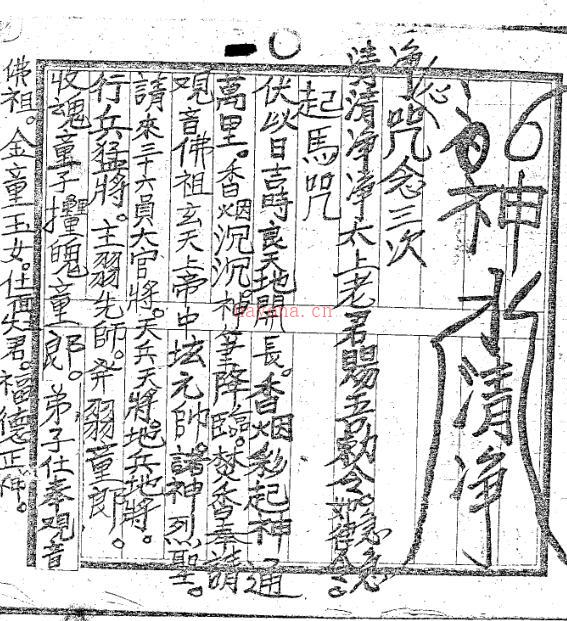 神水清净
净心咒念三次
清清净净太上老君賜吾勅令急急
起馬咒
伏以日吉時良天地開長。香烟彩起神通
萬里。香烟沉沉神筆降臨。焚香奉請
观音佛祖玄天上帝中坛元帅。諸神烈聖。
請來三十六員大官將。天兵天將地兵地將。
行兵猛將。主羽先師。羽童郎。
收魂童子攝魄童郎。弟子仕奉观音
佛祖。金童玉女。仕面火君。福德正神。
nayona.cn